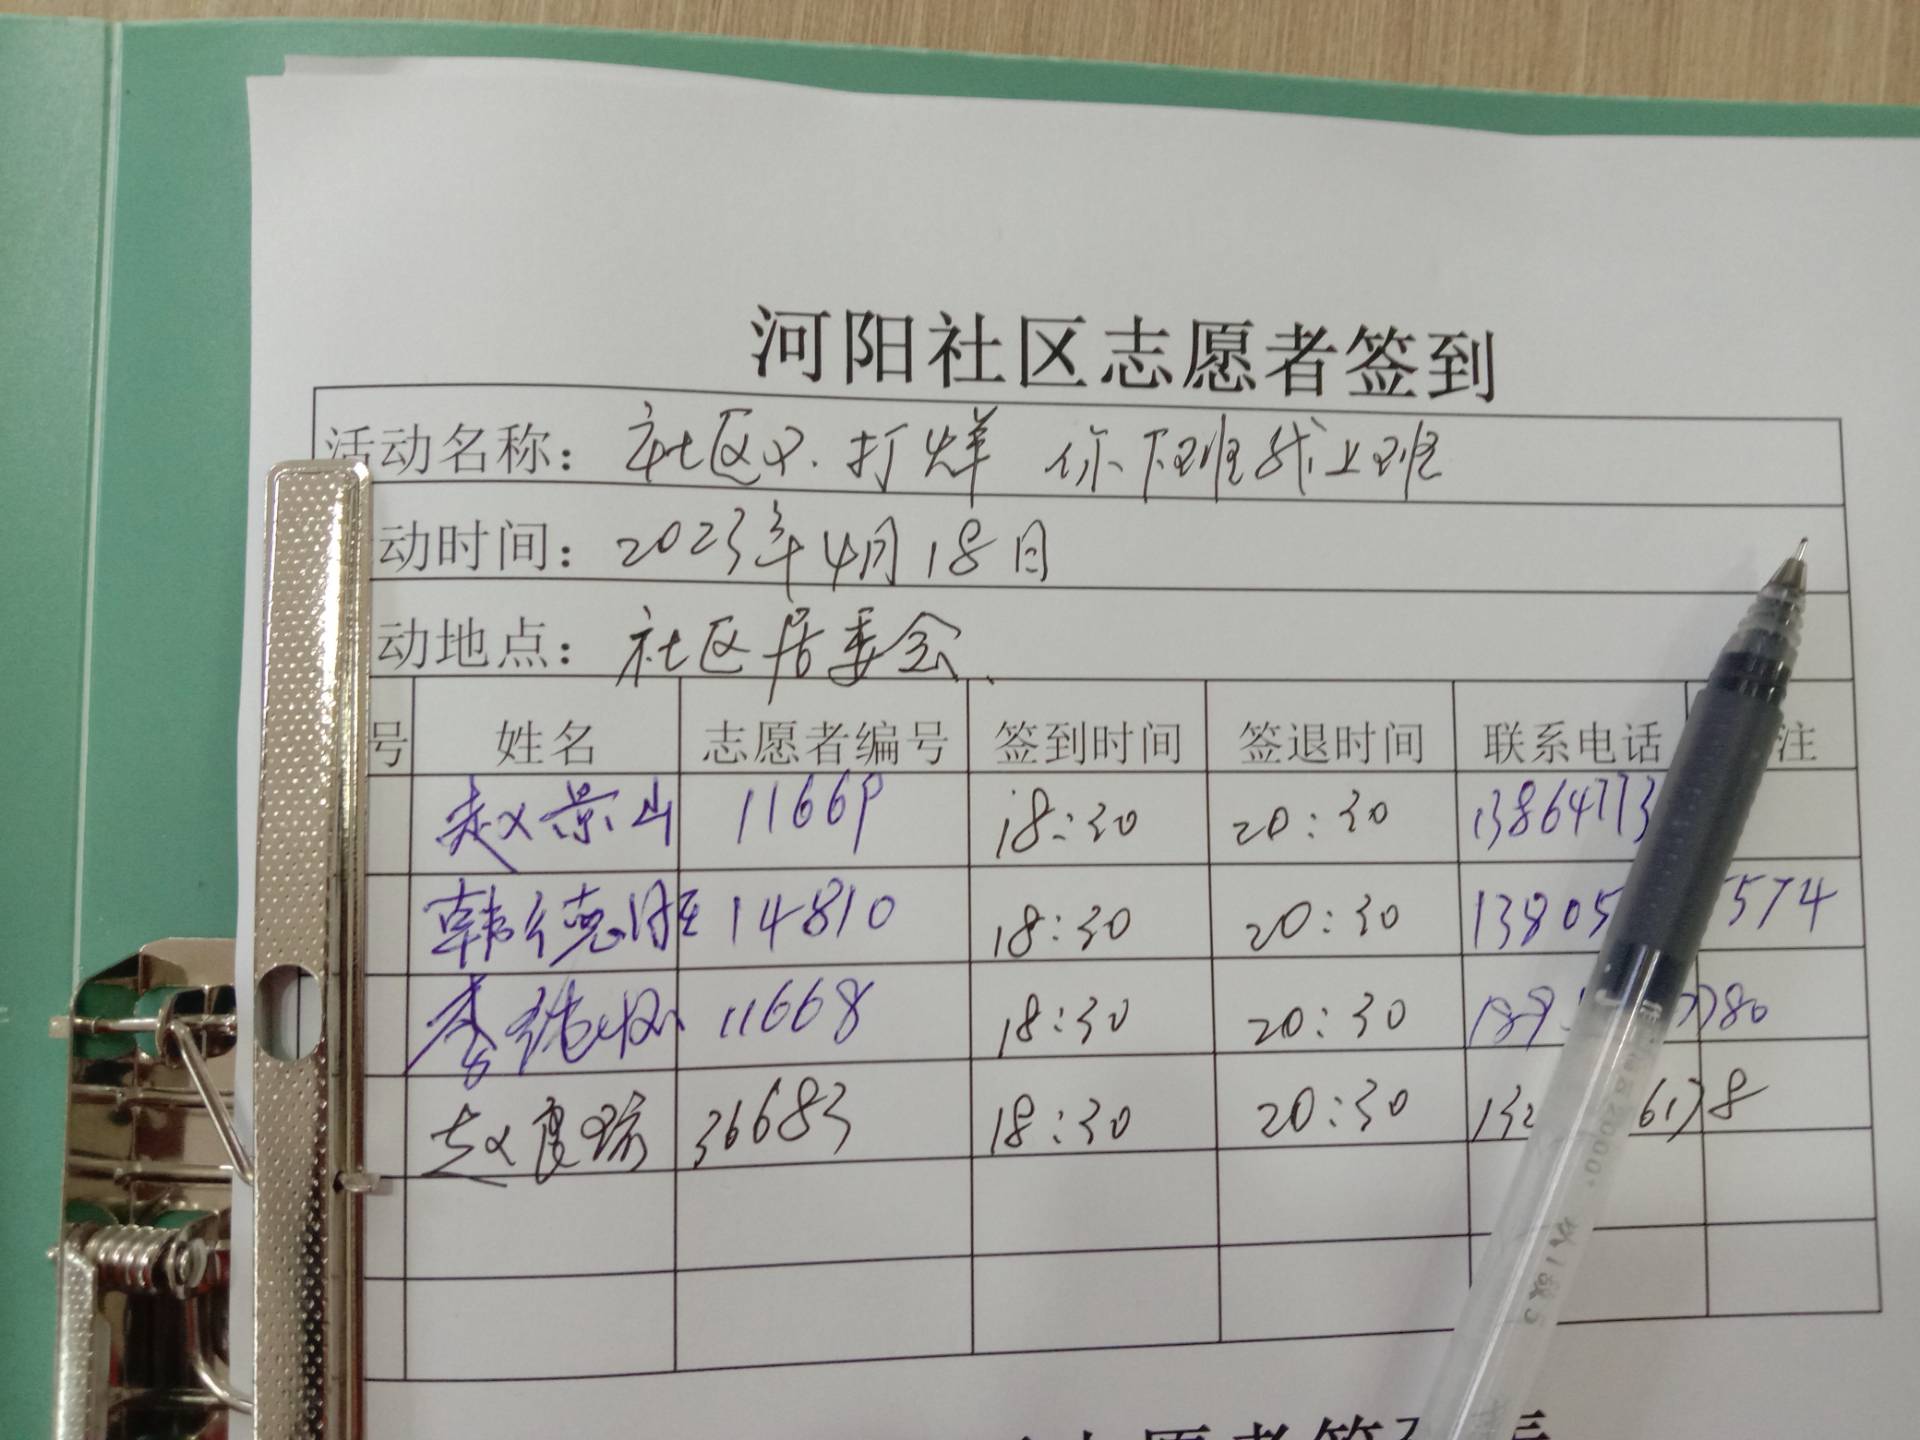 河阳社区志愿者签到
活动名称：社区不打烊 你下班我上班
动时间：2023年4月18日
动地点：社区居委会
号 姓名 志愿者编号 签到时间 签退时间 联系电话 注
赵景山 11669 18:30 20:30 13864773
韩德胜 14810 18:30 20:30 13805 5574
李 11668 18:30 20:30 189 780
赵 36683 18:30 20:30 132 6178
志愿者签